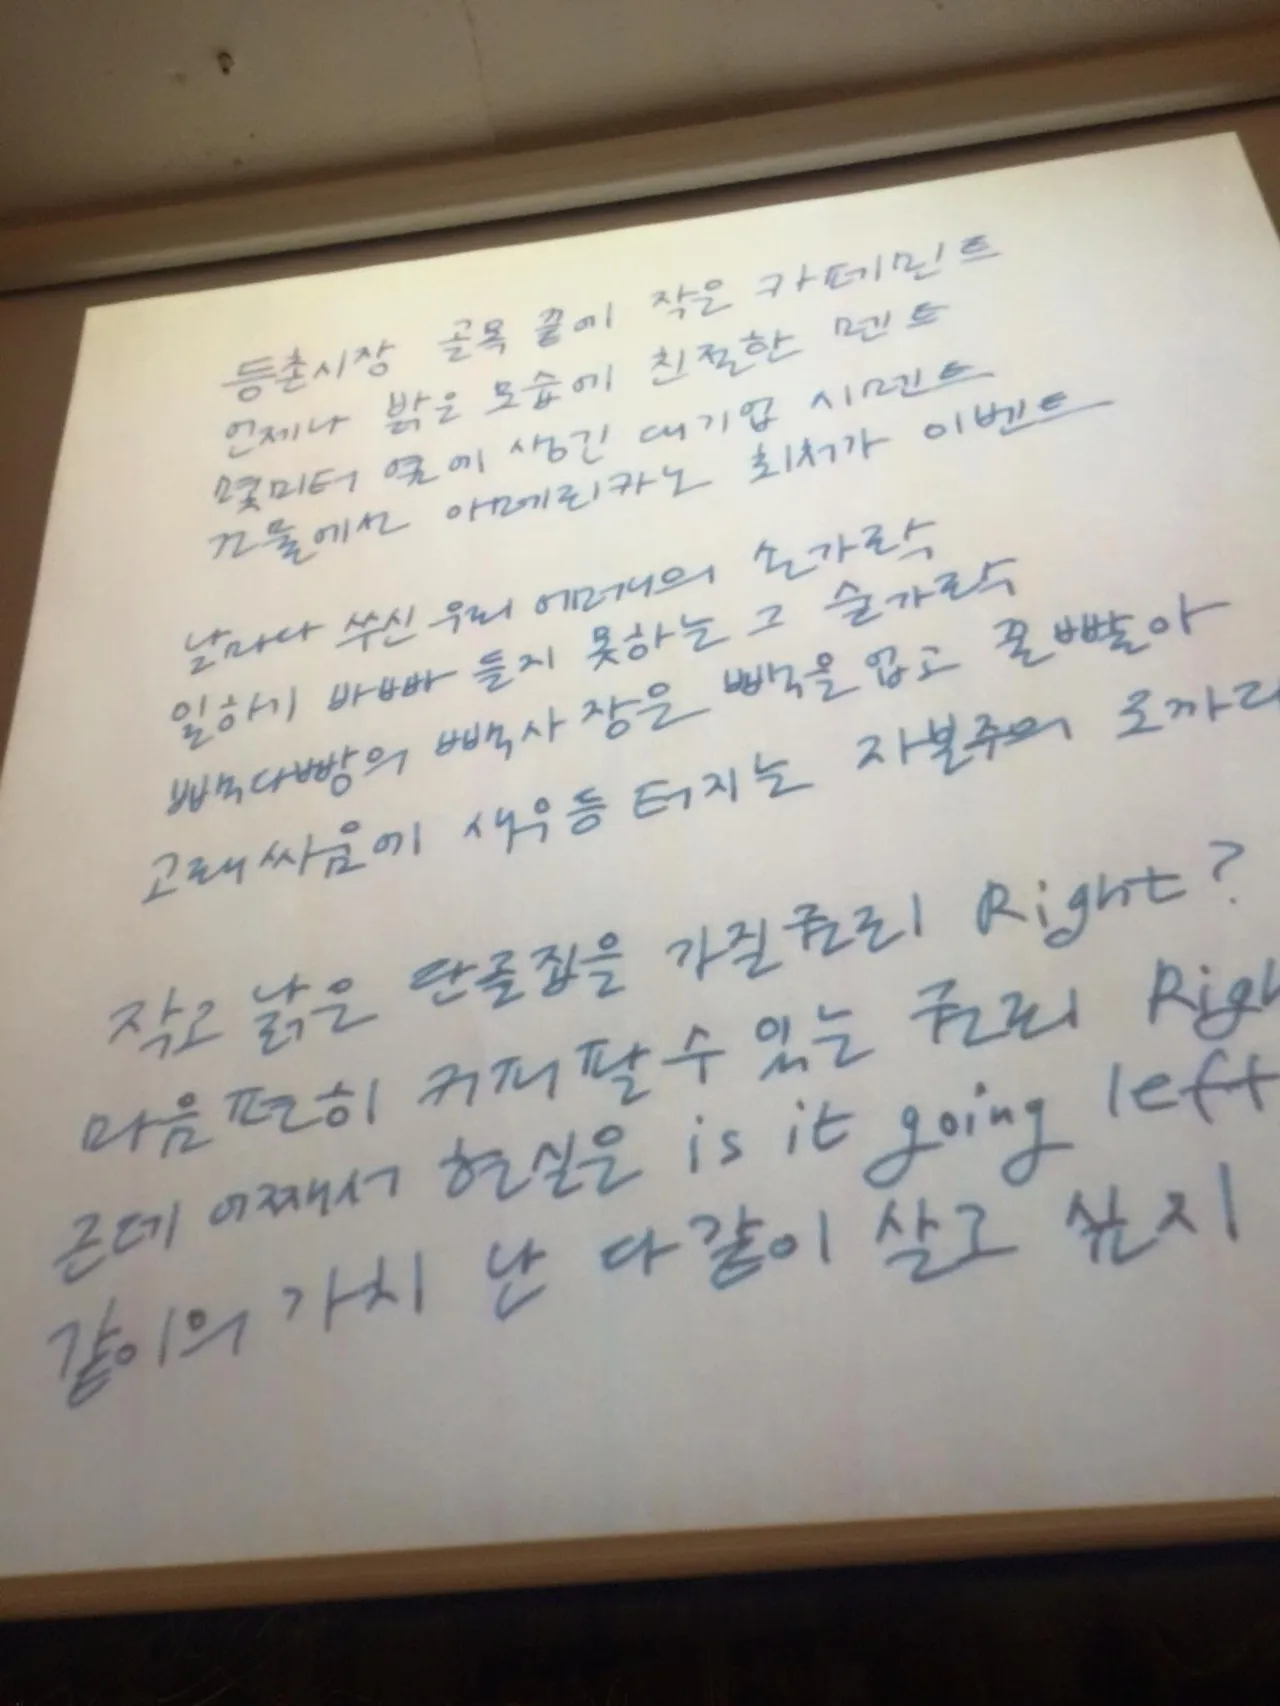 등촌시장 골목 끝에 작은 카페민트
언제나 밝은 모습에 친절한 멘트
몇미터 옆에 생긴 대기업 시멘트
건물에선 아메리카노 최저가 이벤트
날마다 쑤신 우리 손가락
일하기 바빠 들지 못하는 그 숟가락
빽다빵의 빽사장은 빽을 업고 꿀빨아
고래싸움에 새우등 터지는 자본주의
작고 낡은 단골집을 가질 권리 Right?
마음편히 커피 팔 수 있는 권리
근데 어째서 현실은 is it going left
같이의 가치 난 다같이 살고 싶지